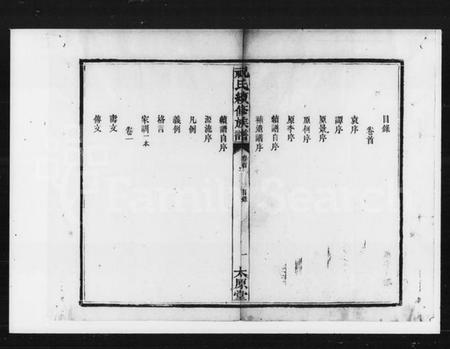 目錄
卷首
袁序
譚序
原景序
原何序
原李序
續譜自序
補遺譜序
祝氏續修族譜
卷首
目錄
一
太原堂
續譜自序
源流序
凡例
義例
格言
家訓二本
卷一
壽文
傳文
FamilySearch